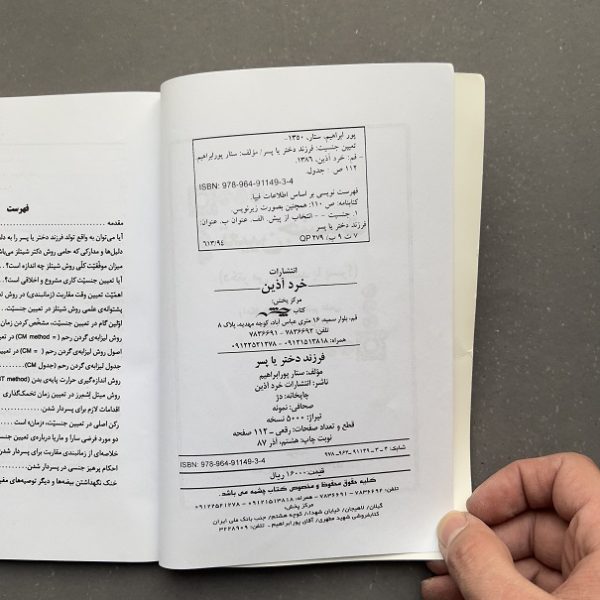 پور ابراهیم، ستار، ۱۳۵۰-
تعیین جنسیت: فرزند دختر یا پسر / مؤلف: ستار پورابراهیم
- قم: خرد آذین، ۱۳۸۶.
۱۱۲ ص : جدول.
ISBN: 978-964-91149-3-4
فهرست نویسی بر اساس اطلاعات فیپا.
کتابنامه: ص ۱۱۰؛ همچنین بصورت زیرنویس.
۱. جنسیت - - انتخاب از پیش. الف. عنوان ب. عنوان:
فرزند دختر یا پسر
۷ ت ۹ پ/ QP ۲۷۹
۶۱۳/۹۴
انتشارات
خرد آذین
مرکز پخش:
کتاب چشمه
قم، بلوار سمیه، ۱۶ متری عباس آباد، کوچه مهدیه، پلاک ۸
تلفن: ۷۸۳۶۶۹۲ - ۷۸۳۶۶۹۱
همراه: ۰۹۱۲۱۵۱۳۸۱۸ - ۰۹۱۲۲۵۲۱۲۷۸
فرزند دختر یا پسر
مؤلف: ستار پورابراهیم
ناشر: انتشارات خرد آذین
چاپخانه: دژ
صحافی: نمونه
تیراژ: ۵۰۰۰ نسخه
قطع و تعداد صفحات: رقعی - ۱۱۲ صفحه
نوبت چاپ: هشتم، آذر ۸۷
شابک: ۴-۳-۹۱۱۴۹-۹۶۴-۹۷۸
ISBN: 978-964-91149-3-4
قیمت: ۱۶۰۰۰ ریال
کلیه حقوق محفوظ و مخصوص کتاب چشمه می باشد.
تلفن: ۷۸۳۶۶۹۲ - ۷۸۳۶۶۹۱ همراه: ۰۹۱۲۱۵۱۳۸۱۸ - ۰۹۱۲۲۵۲۱۲۷۸
مرکز پخش:
گیلان/ لاهیجان/ خیابان شهدا/ کوچه هشتم/ جنب بانک ملی ایران
کتابفروشی شهید مطهری/ آقای پورابراهیم/ تلفن: ۳۲۲۸۹۰۹
فهرست
مقدمه
آیا می‌توان به واقع تولد فرزند دختر یا پسر را به
دلیل‌ها و مدارکی که حامی روش دکتر شتلز
میزان موفقیّت کلّی روش شتلز چه اندازه است؟
آیا تعیین جنسیّت کاری مشروع و اخلاقی است؟
اهمّیّت تعیین وقت مقاربت (زمانبندی) در روش
پشتوانه‌ی علمی روش شتلز در تعیین جنسیّت
اوّلین گام در تعیین جنسیّت، مشخّص کردن زمان
روش لیزابه‌ی گردن رحم (= CM method)
اصول روش لیزابه‌ی گردن رحم (= CM)
جدول لیزابه‌ی گردن رحم (جدول CM)
روش اندازه‌گیری حرارت پایه‌ی بدن
روش میتل اشمرز در تعیین زمان تخمک‌گذاری
اقدامات لازم برای پسردار شدن
رکن اصلی در تعیین جنسیّت، «زمان» است
دو مورد فرضی سارا و ماریا درباره‌ی تعیین
خلاصه‌ای از زمانبندی مقاربت برای پسردار شدن
احکام پرهیز جنسی در پسردار شدن
خنک نگهداشتن بیضه‌ها و دیگر توصیه‌های